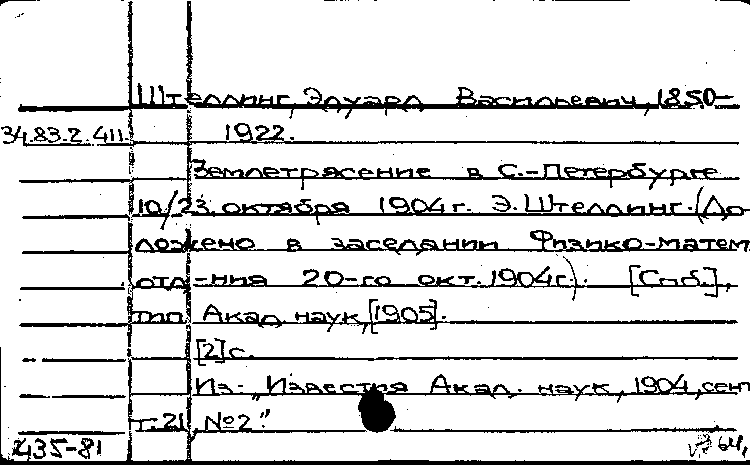 Штеллинг, Эдуард Васильевич, 1850-
34.83.2.411. 1922.
Землетрясение в С.-Петербурге
10/23 октября 1904г. Э. Штеллинг. (До-
ложено в заседании Физико-матем
отд-ния 20-го окт. 1904г.). [Спб.],
тип. Акад. наук, [1905].
[2] с.
Из: "Известия Акад. наук, 1904, сент
т. 21, №2."
435-81